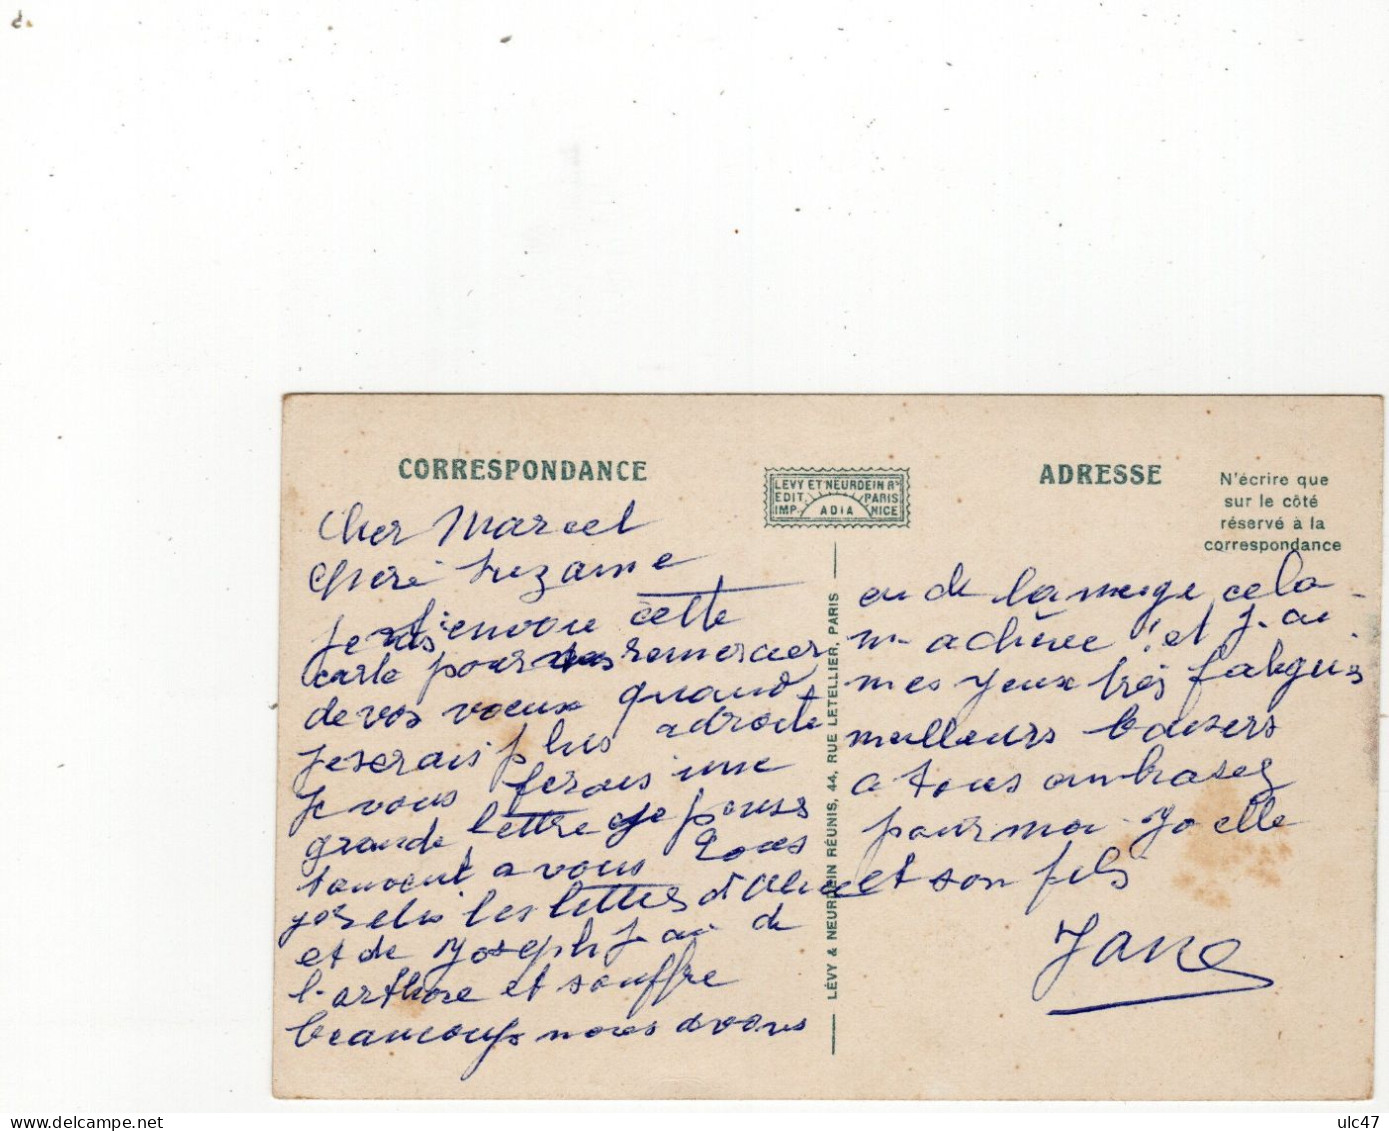 CORRESPONDANCE
LEVY ET NEURDEIN Rs
EDIT. PARIS
IMP. ADIA NICE
ADRESSE
N'écrire que
sur le côté
réservé à la
correspondance
Cher Marcel
Chere Suzanne
Je envoie cette
carte pour remercier
de vos voeux quand
Je serais plus adroite
Je vous ferais une
grande lettre Je pense
souvent a vous
les lettres
et de Joseph J ai de
l-arthose et souffre
beaucoup nous avons
LÉVY & NEURDEIN RÉUNIS, 44, RUE LETELLIER, PARIS
eu de la neige cela
m achève ! et J-ai
mes yeux très fatigués
meilleurs baisers
a tous embrasez
pour moi Joelle
et son fils
Jane
ulc47